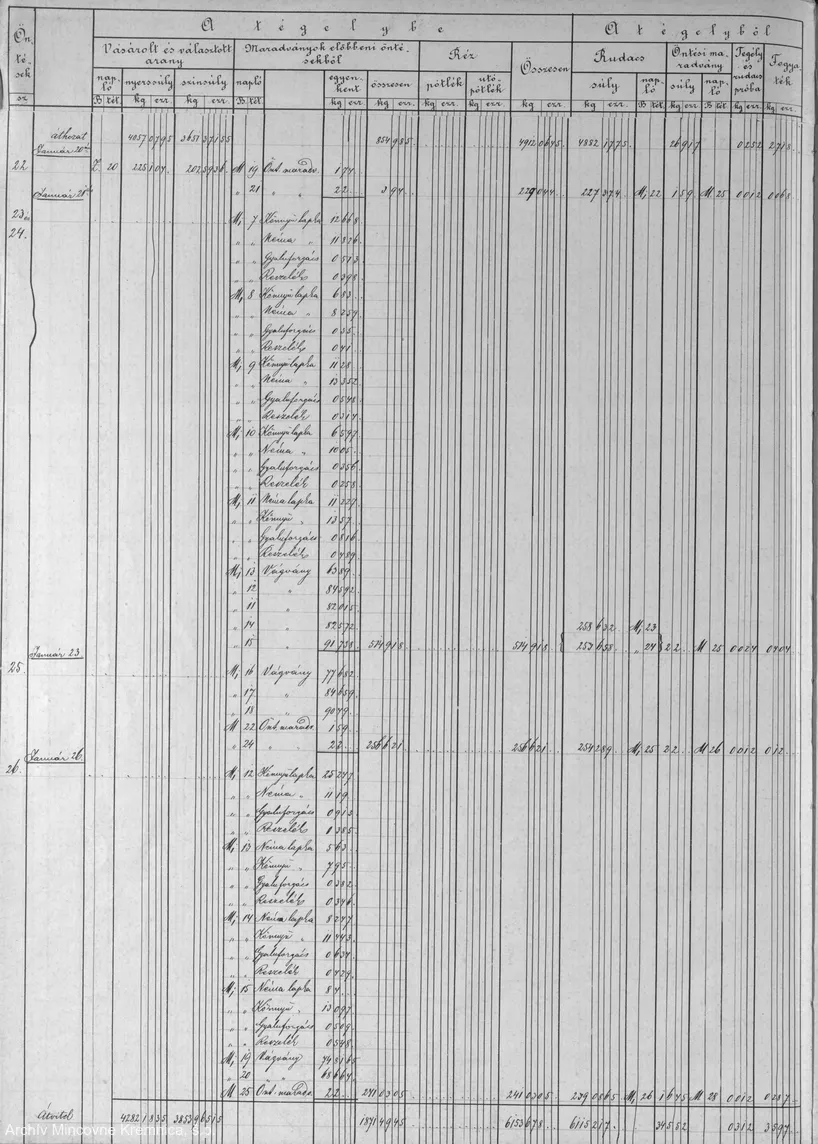 A tégelybe
A tégelyből
Öntések
Vásárolt és választott arany
Maradványok előbbeni öntésekből
Réz
Összesen
Rudacs
Öntési maradvány
Tegély és rudacs próba
Fogyaték
napló nyerssúly szinsúly napló egyenkent összesen pótlék utópótlék súly napló súly napló
sz. B tét. kg err. kg err. B. tét. kg err. kg err. kg err. kg err. kg err. kg err. B tét. kg err. B tét. kg err. kg err.
áthozat 4057 0795 3651 37185 854 985 4912 0645 4882 1775 26 917 0252 2718
Január 20
22 20 225 104 M 19 Önt. marads. 174
Január 21 " 21 " " 22 394 M, 22 159 M 25 0012 0068
23 és M, 7 Könnyü lapka 12 668
24. " " Néma " 11 836
" " Gyaluforgács 0513
" " Reszelék 0398
M, 8 Könnyü lapka 683
" " Néma " 8 257
" " Gyaluforgács 035
" " Reszelék 041
M, 9 Könnyü lapka 11 28
" " Néma " 13 352
" " Gyaluforgács 0548
" " Reszelék 0314
M, 10 Könnyü lapka 6 597
" " Néma " 10 05
" " Gyaluforgács 0356
" " Reszelék 0258
M, 11 Néma lapka 11 227
" " Könnyü " 13 57
" " Gyaluforgács 0816
" " Reszelék 0489
M, 13 Vágvány 6 389
" 12 " 84 592
" 11 " 82 015
" 14 " 82 572 258 632 M, 23
Január 23 " 15 " 91 738 514 918 514 918 253 658 " 24 22 M 25 0024 0404
25. M, 16 Vágvány 77 682
" 17 " 84 659
" 18 " 90 79
M 22 Önt. marads. 159
Január 26. " 24 " " 22 256 621 256 621 254 289 M, 25 22 M 26 0012 012
26. M, 12 Könnyü lapka 25 247
" " Néma " 11 19
" " Gyaluforgács 0913
" " Reszelék
M, 13 Néma lapka 563
" " Könnyü " 795
" " Gyaluforgács 0382
" " Reszelék 0346
M, 14 Néma lapka 8 247
" " Könnyü " 11 443
" " Gyaluforgács 0634
" " Reszelék 0429
M, 15 Néma lapka 84
" " Könnyü " 13 097
" " Gyaluforgács 0509
" " Reszelék 0548
M, 19 Vágvány
" 20 " 68 664
M 25 Önt. marads. 22 241 0305 241 0305 239 0865 M, 26 1 645 M 28 0012 0287
Átvitel 4282 1835 3853 96515 1871 4945 6153 678 6115 217 34 552 0312 3 597
Archív Mincovne Kremnica, š.p.